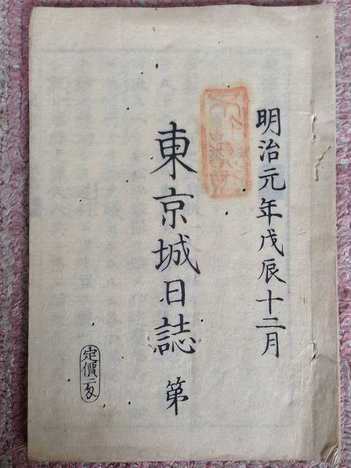 明治元年戊辰十二月
東京城日誌 第
定價一匁